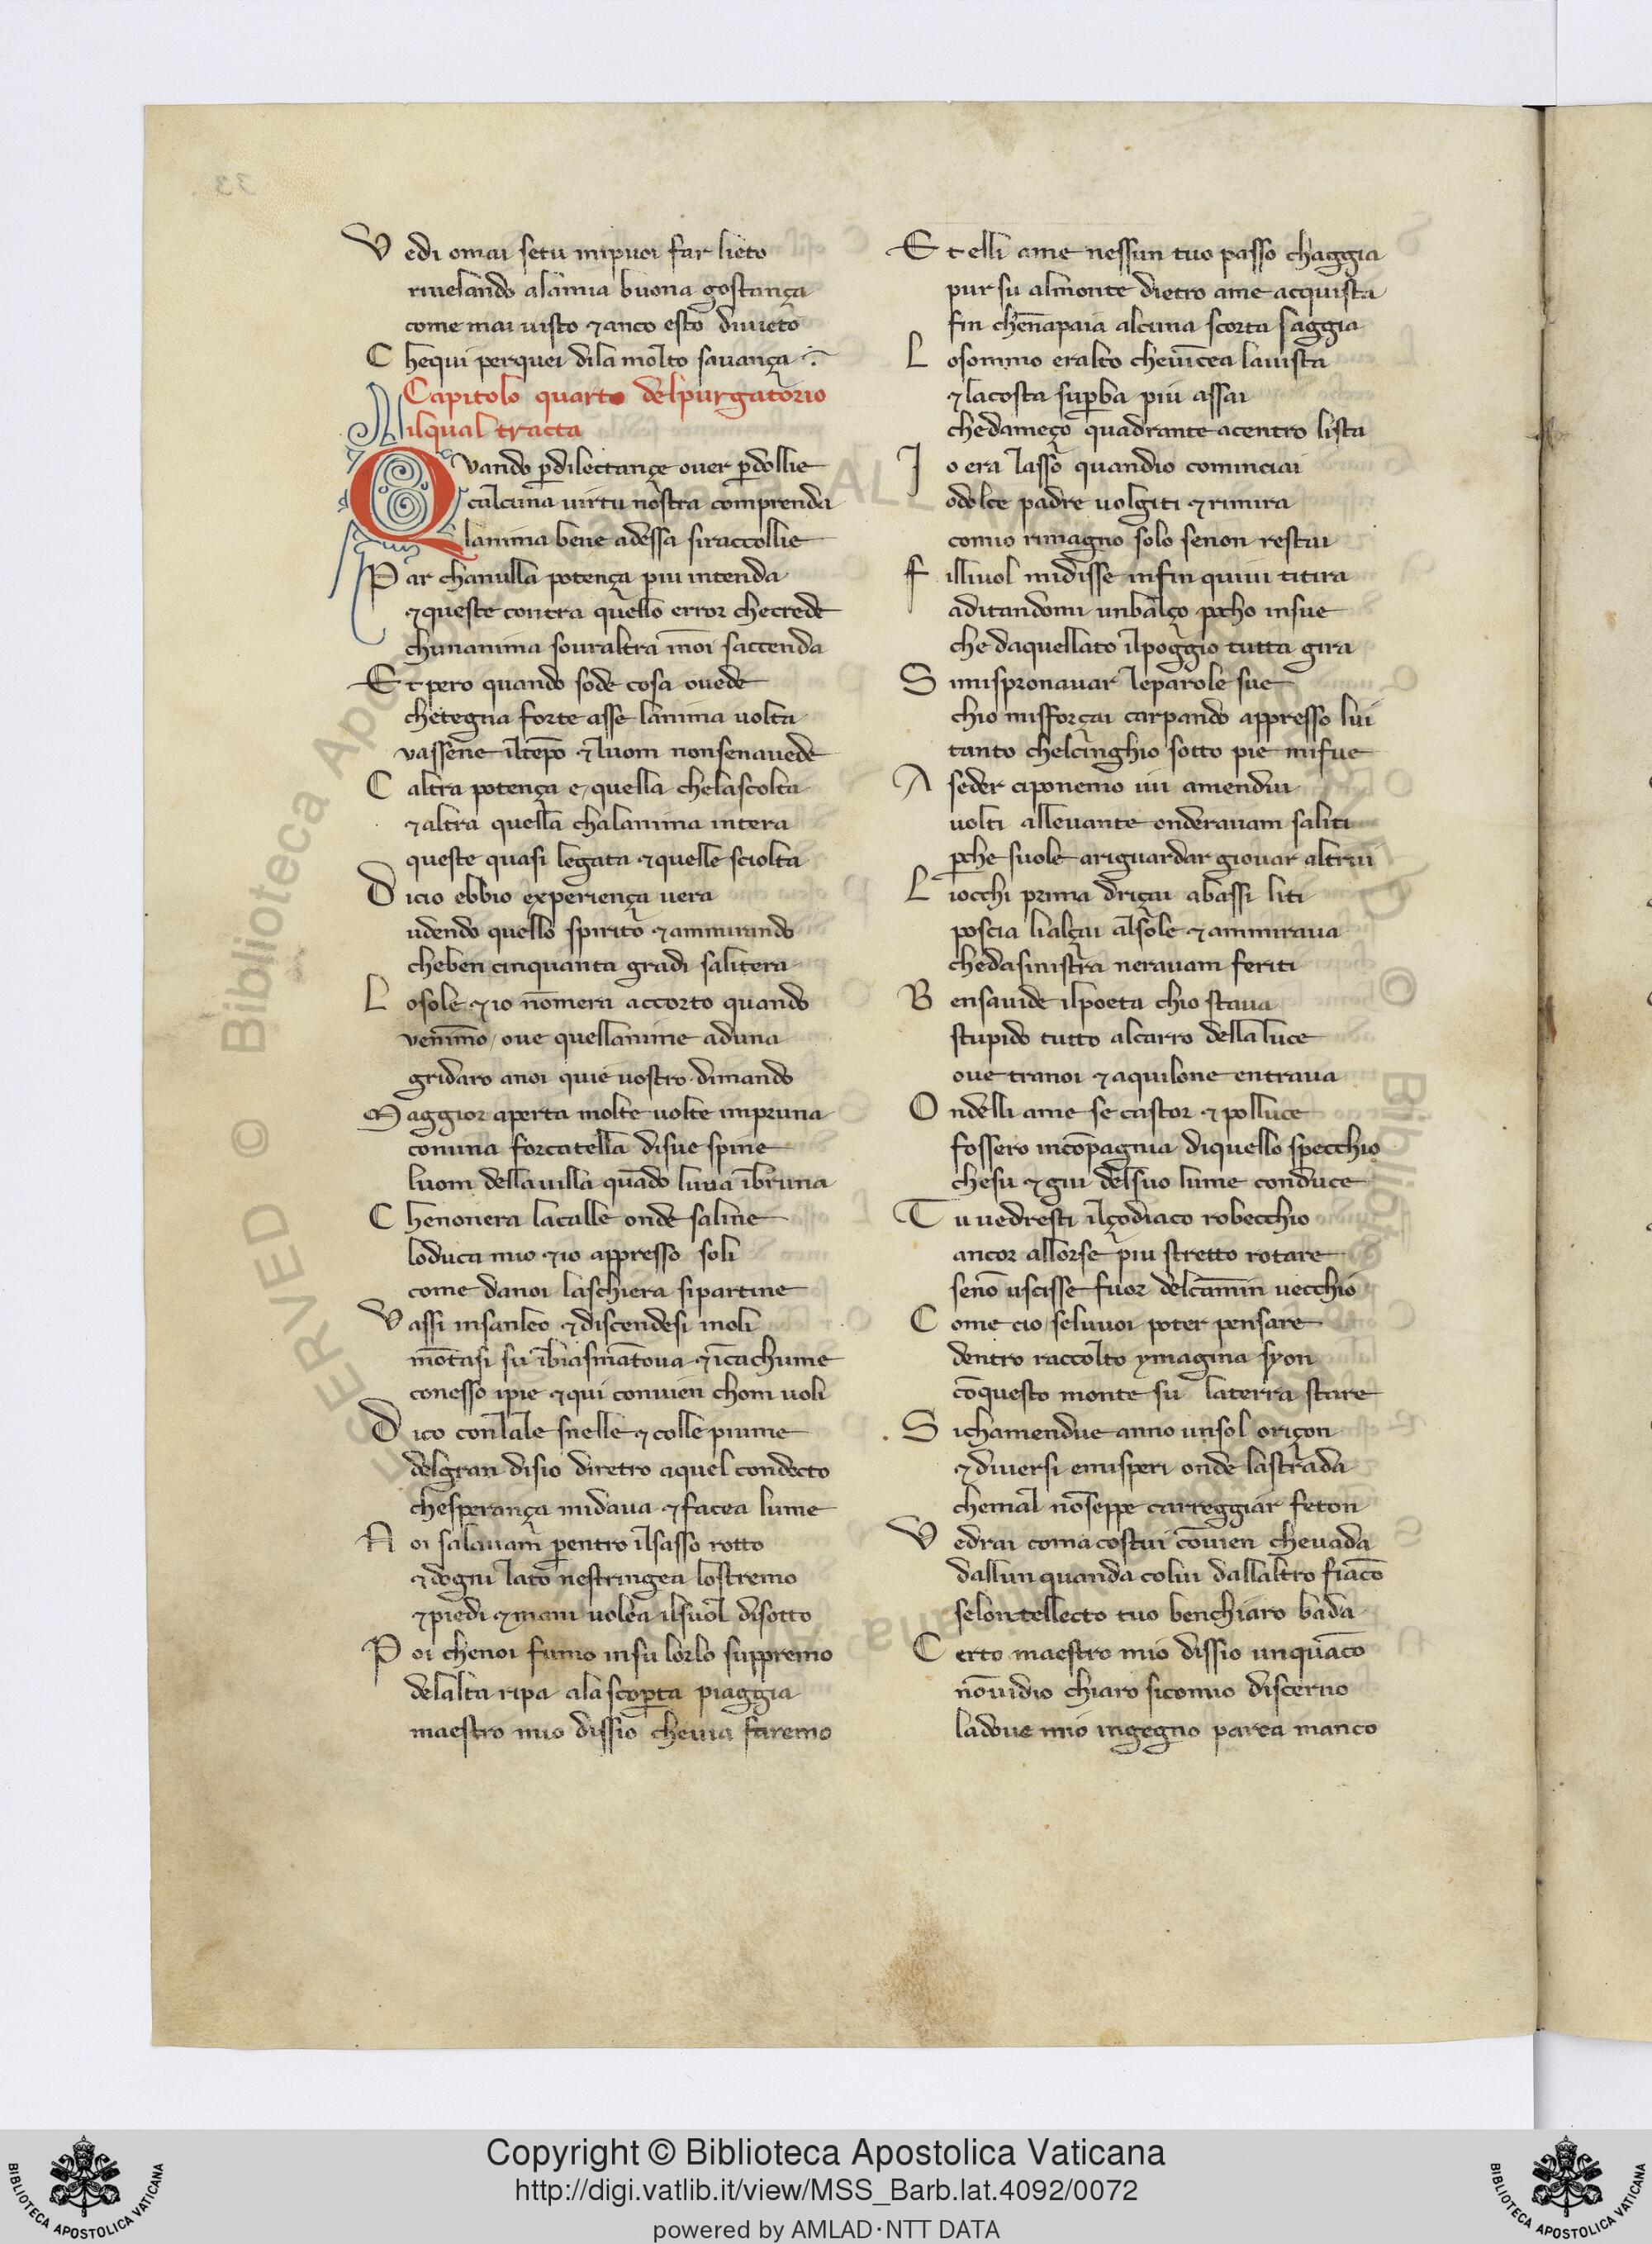 Vedi omai setu mipuoi far lieto
riuelando alamia buona gostança
come mai uisto ⁊ anco esto diuieto
Chequi perquei dila molto sauança
Capitolo quarto delpurgatorio
ilqual tracta
Quando p̲dilectançe ouer p̲dollie
calcuna uirtu nostra comprenda
lanima bene adessa siraccollie
Par chanulla potença piu intenda
⁊ queste contra quello error checrede
chunanima souraltra ī noi saccenda
Et pero quando sode cosa ouede
chetegna forte asse lanima uolta
vassene iltēpo ⁊ luom nonsenauede
Caltra potença e quella chelascolta
⁊ altra quella chalanima intera
queste quasi legata ⁊ quelle sciolta
Dicio ebbio experiença uera
udendo quello spirito ⁊ ammirando
cheben cinquanta gradi salitera
Losole ⁊ io nō mera accorto quando
venimmo oue quellanime aduna
gridaro anoi quie uostro dimando
Maggior aperta molte uolte impruna
conuna forcatella disue spine
luom dellauilla quādo luua ībruna
Chenonera lacalle onde saline
loduca mio ⁊ io appresso soli
come danoi laschiera sipartine
Vassi insanleo ⁊ discendesi inoli
mōtasi su ībismātoua ⁊ īcachume
conesso ipie ⁊ qui conuien chom uoli
Dico conlale snelle ⁊ colle piume
delgran disio diretro aquel condocto
chesperança midaua ⁊ facea lume
Noi salauam p̲entro ilsasso rotto
⁊ dogni lato nestringea lostremo
⁊ piedi ⁊ mani uolea ilsuol disotto
Poi chenoi fumo insu lorlo suppremo
delalta ripa ala scop̲ta piaggia
maestro mio dissio cheuia faremo
Et elli ame nessun tuo passo chaggia
pur su almonte dietro ame acquista
fin chēnapaia alcuna scorta saggia
Losommo eralto cheuīcea lauista
⁊ lacosta sup̲ba piu assai
chedameço quadrante acentro lista
Io era lasso quandio cominciai
odolce padre uolgiti ⁊ rimira
comio rimagno solo senon restai
Filliuol midisse infin quiui titira
aditandomi unbalço pocho insue
che daquellato ilpoggio tutta gira
Simispronauar leparole sue
chio misforçai carpando appresso lui
tanto chelcinghio sotto pie mifue
A seder ciponemo iui amendui
uolti alleuante onderauam saliti
p̲che suole ariguardar giouar altrui
Liocchi prima driçai abassi liti
poscia lialçai alsole ⁊ ammiraua
chedasinistra nerauam feriti
Bensauide ilpoeta chio staua
stupido tutto alcarro della luce
oue tranoi ⁊ aquilone entraua
Ondelli ame se castor ⁊ polluce
fossero incōpagnia diquello specchio
chesu ⁊ giu delsuo lume conduce
Tu uedresti ilçodiaco robecchio
ancor allorse piu stretto rotare
senō uscisse fuor delcāmin uecchio
Come cio seluuoi poter pensare
dentro raccolto ymagina syon
cōquesto monte su laterra stare
Sichamendue anno unsol oriçon
⁊ diuersi emisperi onde lastrada
chemal nō seppe carreggiar feton
Vedrai coma costui cōuien cheuada
dallun quanda colui dallaltro fiāco
selontellecto tuo benchiaro bada
Certo maestro mio dissio unquāco
nō uidio chiaro sicomio discerno
ladoue mio ingegno parea manco
33
© Biblioteca Apostolica Vaticana
Copyright © Biblioteca Apostolica Vaticana
http://digi.vatlib.it/view/MSS_Barb.lat.4092/0072
powered by AMLAD·NTT DATA
BIBLIOTECA APOSTOLICA VATICANA
BIBLIOTECA APOSTOLICA VATICANA